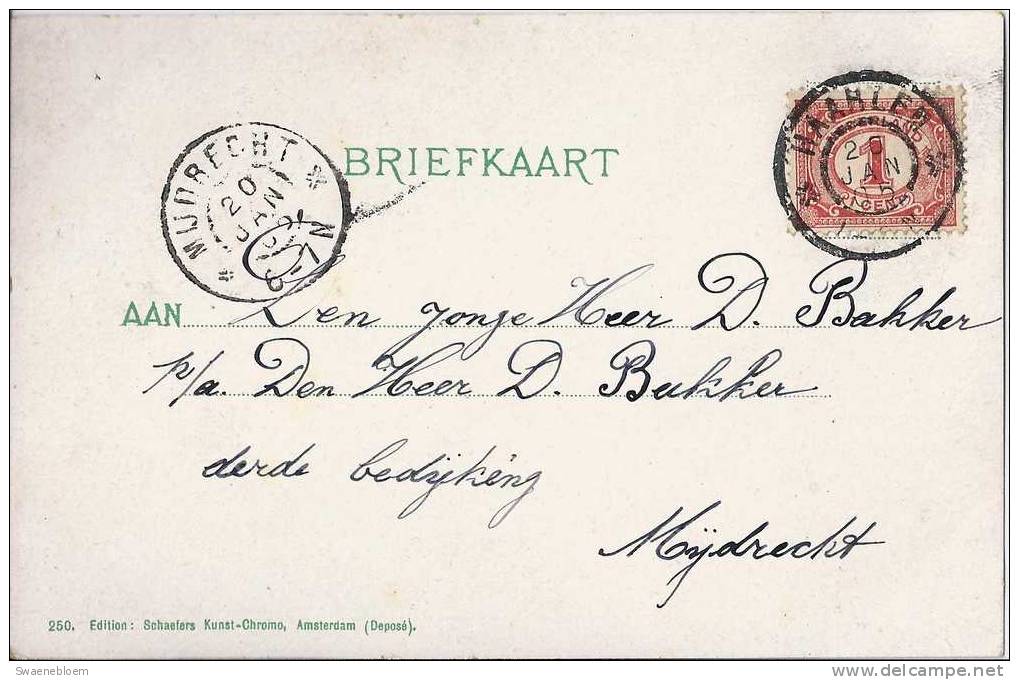 BRIEFKAART
MIJDRECHT
20
JAN
8-12 N
HAARLEM
20
JAN
05
NEDERLAND
1
CENT
AAN Den jonge Heer D. Bakker
p/a. Den Heer D. Bakker
derde bedijking
Mijdrecht
250. Edition: Schaefers Kunst-Chromo, Amsterdam (Deposé).
Swaenebloem
www.delcampe.net